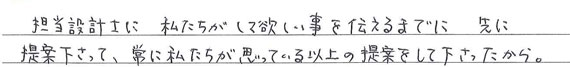 担当設計士に 私たちがして欲しい事を伝えるまでに 先に
提案下さって、常に私たちが思っている以上の提案をして下さったから。